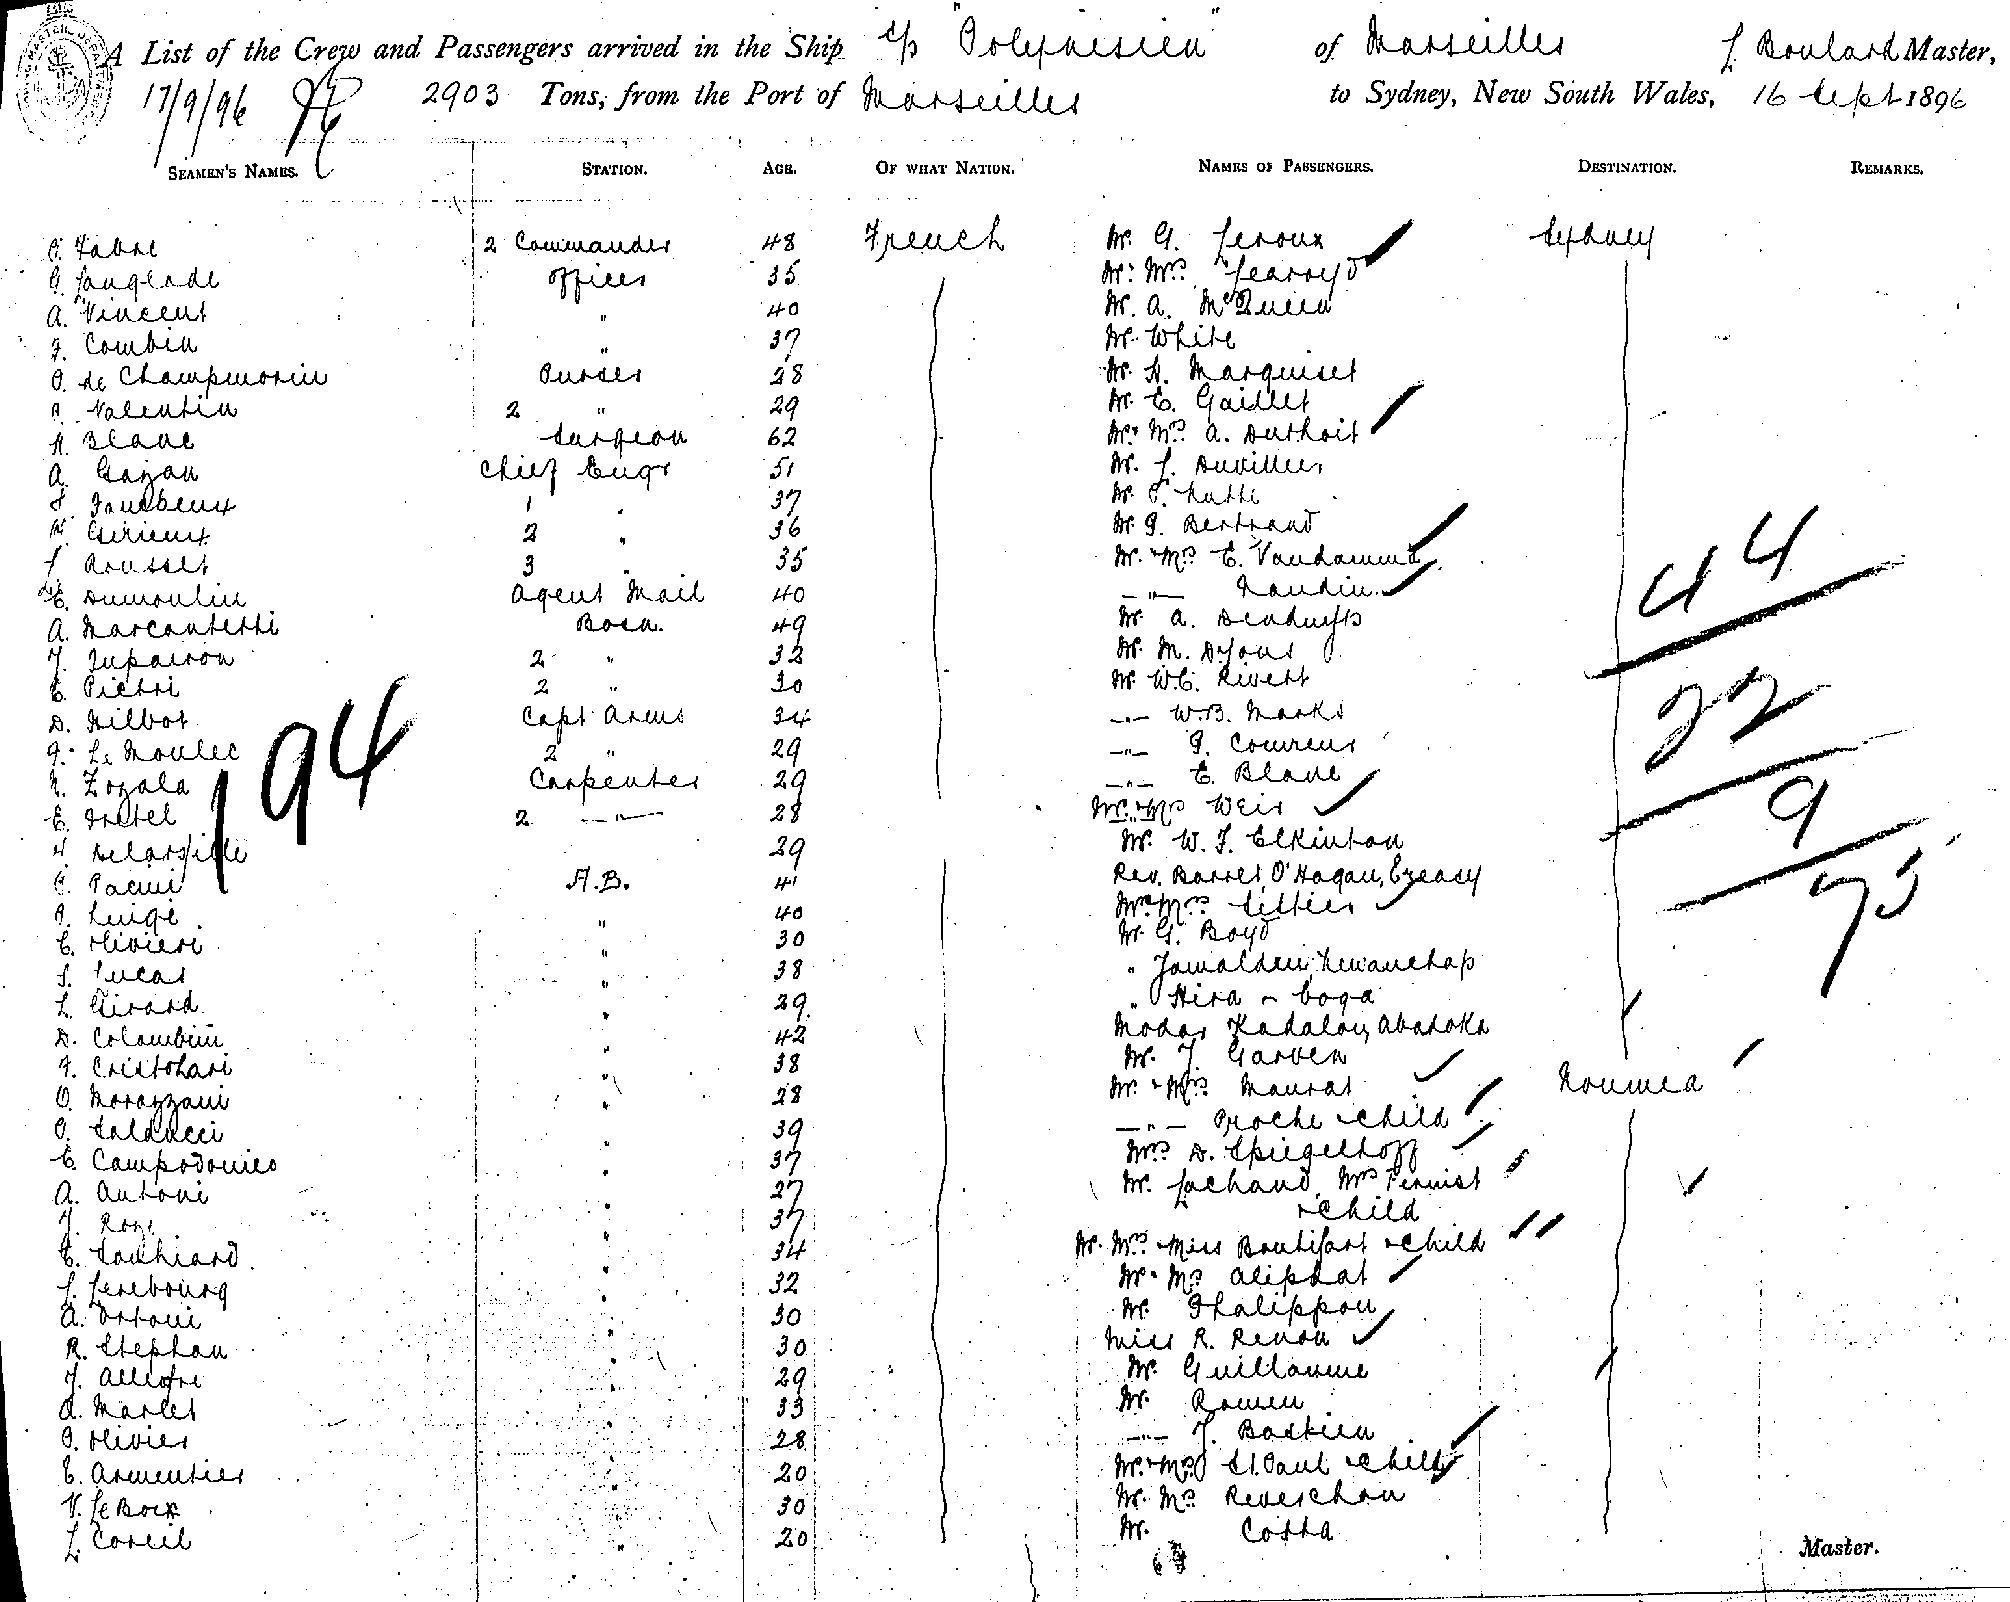 A List of the Crew and Passengers arrived in the Ship s/s "Polynesien" of Marseilles L. Boulard Master,
17/9/96 2903 Tons, from the Port of Marseilles to Sydney, New South Wales, 16 Sept 1896
SEAMEN'S NAMES. STATION. AGE. OF WHAT NATION. NAMES OF PASSENGERS. DESTINATION. REMARKS.
P. Fabre 2 Commander 48 French Mr. G. Leroux Sydney
G. Langlade Officer 35 Mr. Mrs. Learoyd
A. Vincent " 40 Mr. A. McQueen
J. Combin " 37 Mr. White
P. de Champmorin Purser 28 Mr. H. Marquiset
Valentin 2 " 29 Mr. E. Gaillet
H. Blanc Surgeon 62 Mr. Mrs. A. Duthoit
A. Gazan Chief Engr 51 Mr. L. Duvillier
Faucheux 1 " 37 Mr.
2 " 36 Mr. G. Bertrand
Rousset 3 " 35 Mr. & Mrs. E. Vandamme
E. Dumoulin Agent Mail 40 —"— Naudin
A. Marcantetti Bosn. 49 Mr. A.
J. 2 " 32 Mr. M. Dyons
E. Pietri 2 " 30 Mr. W.C. Rivert
D. Milbot Capt Arms 34 —"— W.B. Marks
Le Moulec 2 " 29 —"—
Zogala Carpenter 29 —"— E. Blanc
E. 2 —"— 28 Mr. & Mrs Weir
29 Mr. W. F. Elkinton
P. Pacini A.B. 41 Rev. Barret, O'Hagan,
P. Luigi " 40 Mr. & Mrs.
E. Olivieri " 30 Mr. G. Boyd
S. Lucas " 38 "
L. Girard " 29 " Hira &
D. Colombini " 42
Cristofari " 38 Mr. J. Garven
O. Morazzani " 28 Mr. & Mrs. Maurat Noumea
P. Salducci " 39 —"— Proche & child
E. Campodonico " 37 Mrs. D. Spiegelhoff
A. Antoni " 27 Mr. Lachaud, Mrs
J. " 37 & Child
E. " 34 Mr. Mrs & Miss & child
L. Lerebourg " 32 Mr. & Mrs
A. Ortoni " 30 Mr. Phalippou
R. Stephan " 30 Miss R. Renou
J. Allegre " 29 Mr. Guillaume
A. Marlet " 33 Mr.
P. Olivier " 28 —"— J. Bastien
E. Armentier " 20 Mr. & Mrs St. Paul & Child
V. Le Boix " 30 Mr. Mrs. Reverchon
L. Coreil " 20 Mr. Costa
194
44
22
9
75
Master.